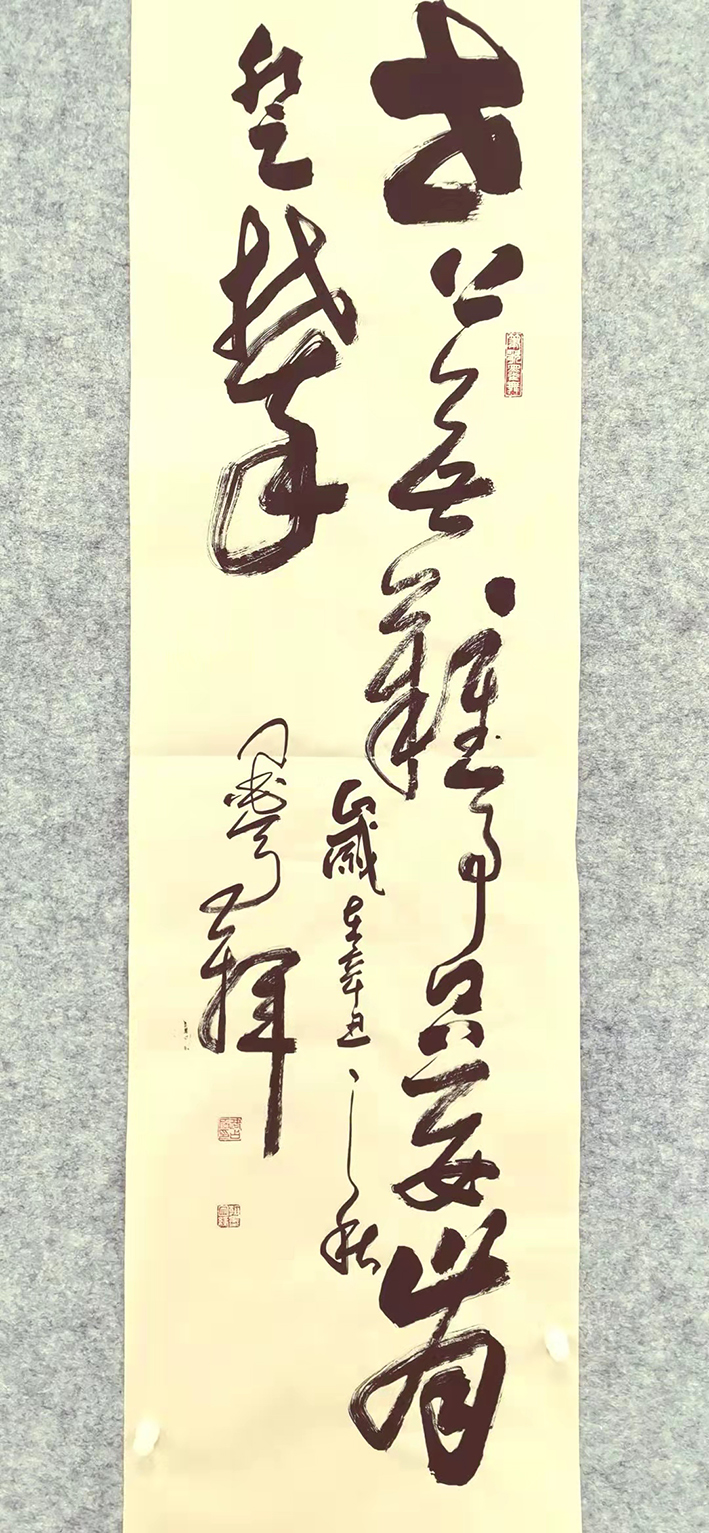 世上無難事只要肯
登攀
歲在辛丑之秋
拜